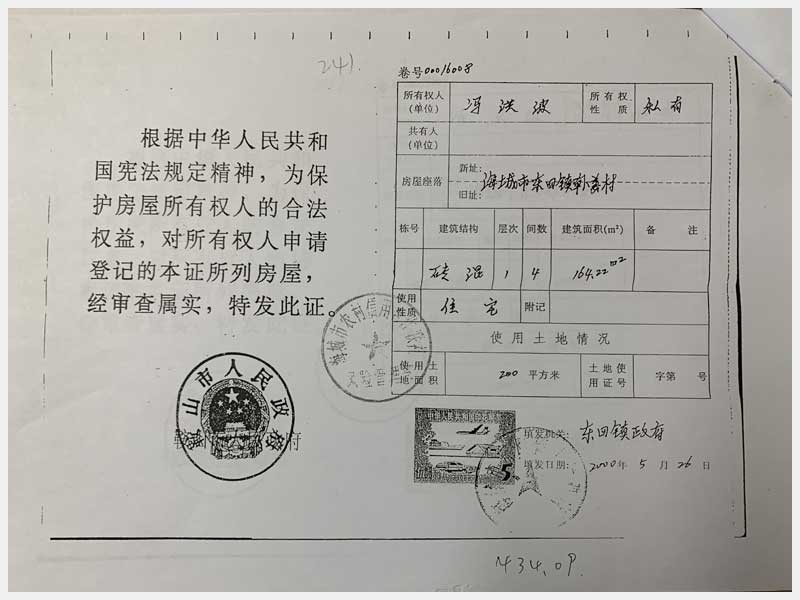 241.
根据中华人民共和
国宪法规定精神，为保
护房屋所有权人的合法
权益，对所有权人申请
登记的本证所列房屋，
经审查属实，特发此证。
鞍山市人民政府
卷号00016008
所有权人(单位) 冯洪波 所有权性质 私有
共有人(单位)
房屋座落 新址: 旧址: 海城市东四镇
栋号 建筑结构 层次 间数 建筑面积(m²) 备注
砖混 1 4 164.22m²
使用性质 住宅 附记
使用土地情况
使用土地面积 200 平方米 土地使用证号 字第 号
5
填发机关: 东四镇政府
填发日期: 2000年 5 月 26 日
434.09